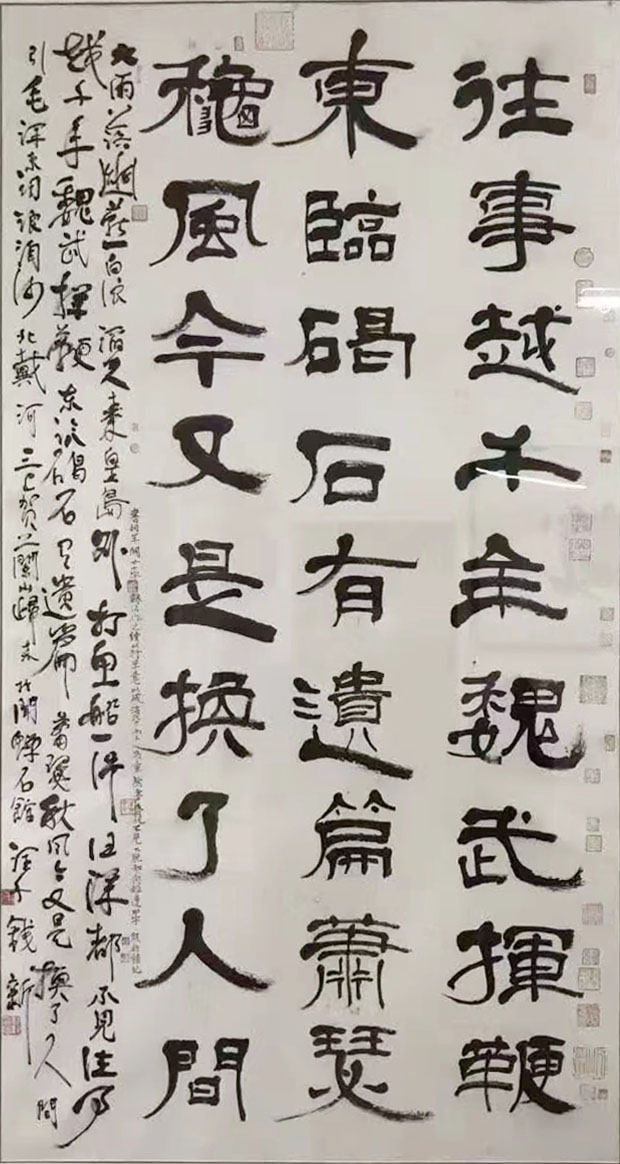 往事越千年魏武揮鞭
東臨碣石有遺篇蕭瑟
龝風今又是換了人間
大雨落幽燕白浪滔天秦皇島外打魚船一片汪洋都不見往事
越千年魏武揮鞭东临碣石有遺篇蕭瑟秋風今又是換了人間
引毛澤東詞浪淘沙北戴河 賀蘭山歸來 石館 錢新